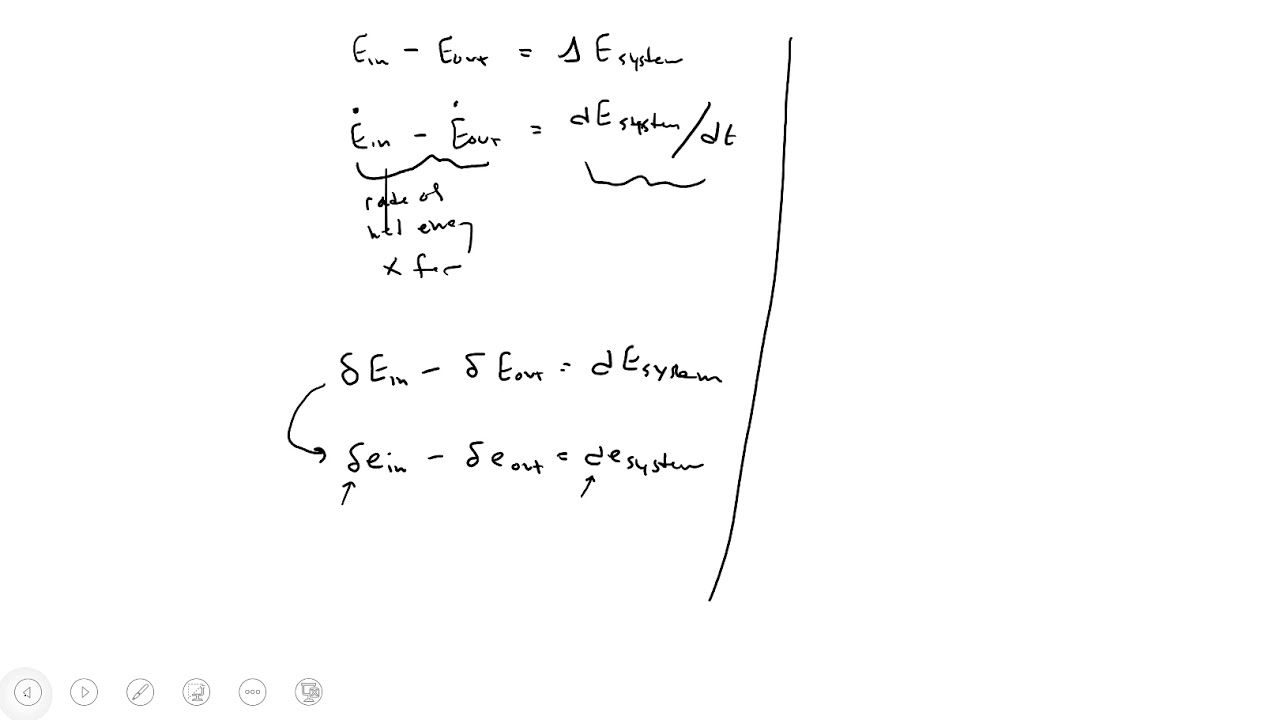 E_in - E_out = Δ E_system
Ė_in - Ė_out = dE_system/dt
rate of
net energy
xfer
δE_in - δE_out = dE_system
δe_in - δe_out = de_system